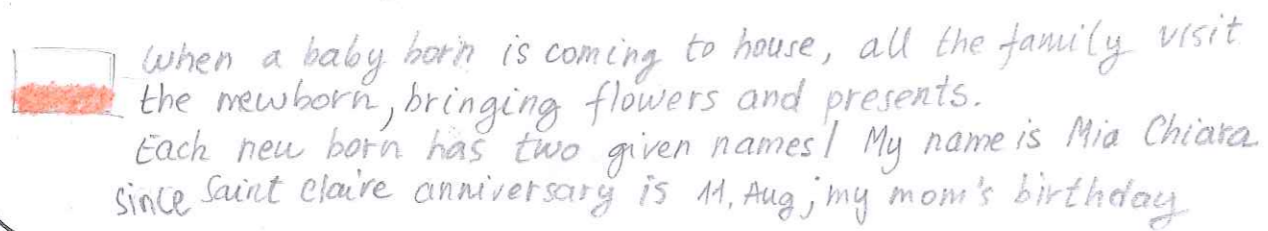 When a baby born is coming to house, all the family visit
the newborn, bringing flowers and presents.
Each new born has two given names! My name is Mia Chiara
since Saint Claire anniversary is 11. Aug; my mom's birthday